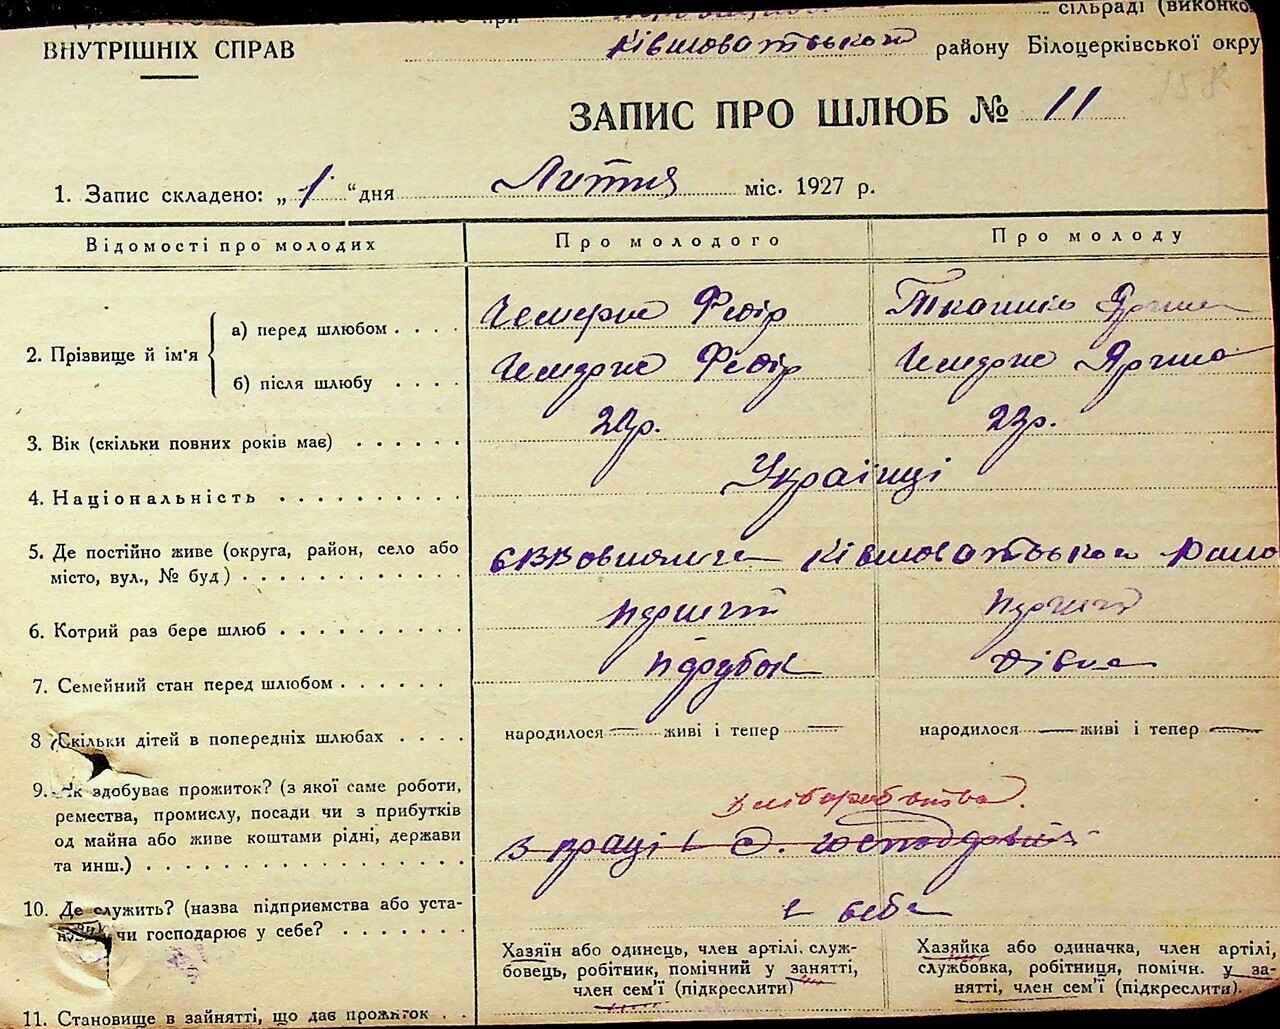 при сільраді (виконко
ВНУТРІШНІХ СПРАВ Ківшоватського району Білоцерківської окру
158
ЗАПИС ПРО ШЛЮБ № 11
1. Запис складено: „ 1 “ дня Лютня міс. 1927 р.
Відомості про молодих Про молодого Про молоду
2. Прізвище й ім'я
а) перед шлюбом . . . . Федір
б) після шлюбу . . . . Федір
3. Вік (скільки повних років має) . . . . . . 23р.
4. Національність . . . . . . . . . . Українці
5. Де постійно живе (округа, район, село або
місто, вул., № буд) . . . . . . . . . . . . Ківшоватського
6. Котрий раз бере шлюб . . . . . . . . . . перший перший
7. Семейний стан перед шлюбом . . . . . . парубок дівка
8 Скільки дітей в попередніх шлюбах . . . . народилося — живі і тепер — народилося — живі і тепер —
9. Як здобуває прожиток? (з якої саме роботи, хліборобства
ремества, промислу, посади чи з прибутків
од майна або живе коштами рідні, держави
та инш.) . . . . . . . . . . . . . . . . з праці в с. господарстві
10. Де служить? (назва підприємства або уста-
нови) чи господарює у себе? . . . . . . . в себе
Хазяїн або одинець, член артілі, служ-
бовець, робітник, помічний у занятті,
член сем'ї (підкреслити)
Хазяйка або одиначка, член артілі,
службовка, робітниця, помічн. у за-
нятті, член сем'ї (підкреслити).
11. Становище в зайнятті, що дає прожиток . .